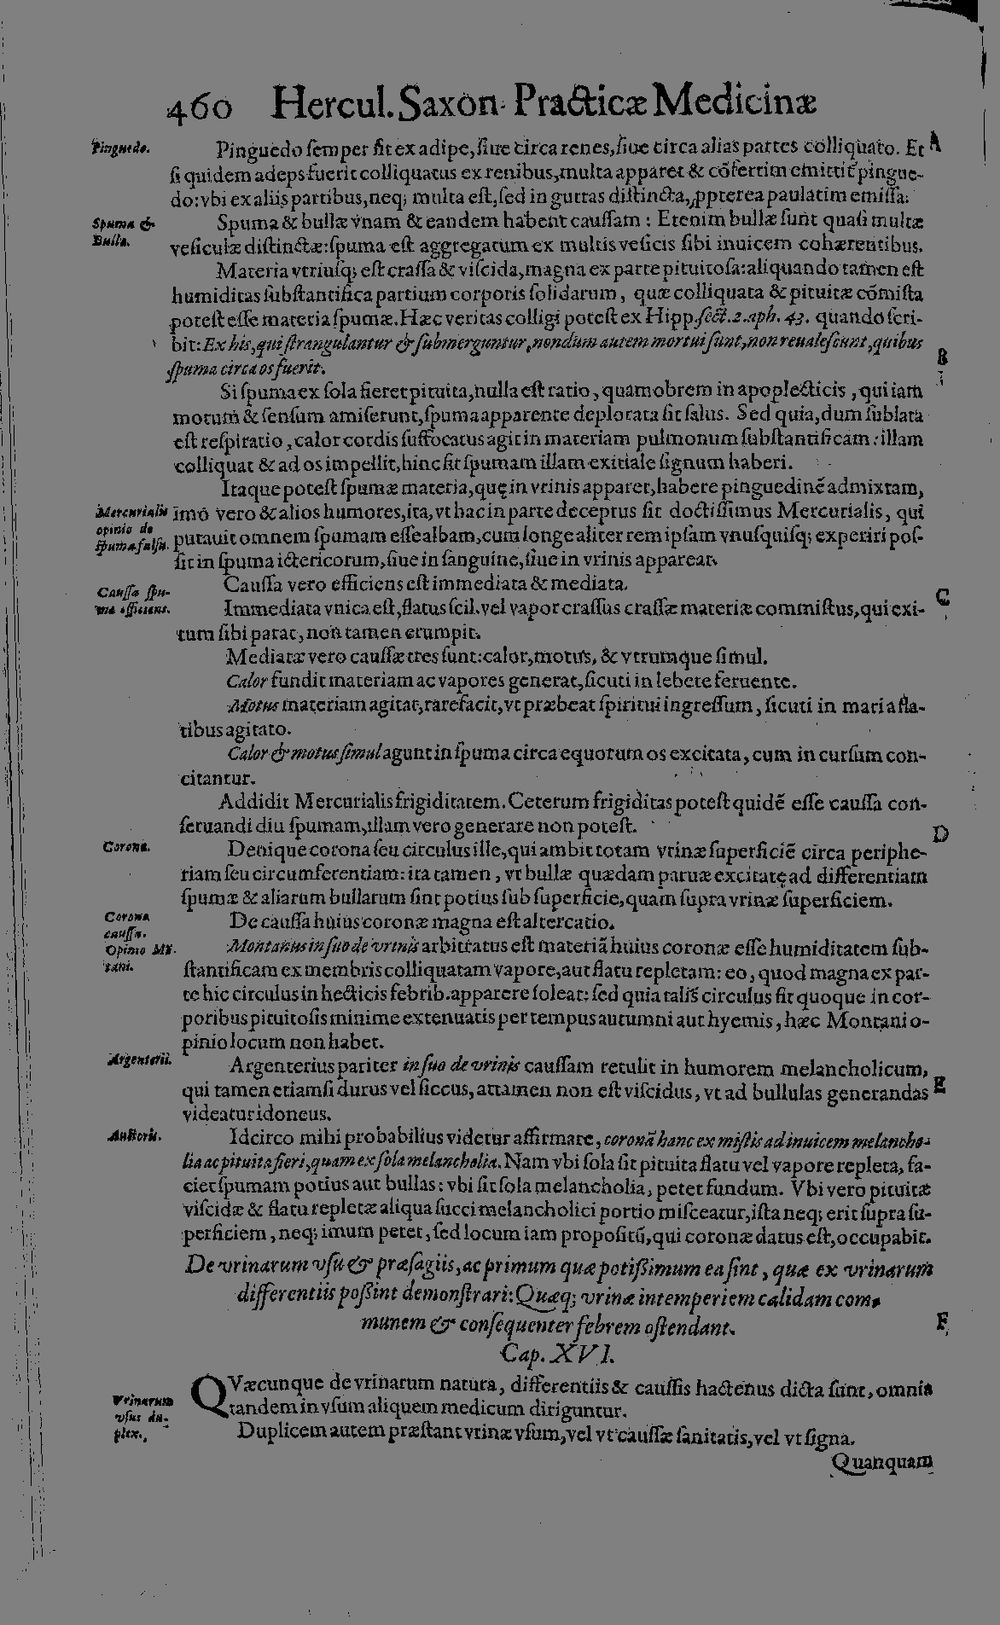 460 Hercul. Saxon. Practicæ Medicinæ
Pinguedo.
Pinguedo ſemper fit ex adipe, ſiue circa renes, ſiue circa alias partes colliquato. Et A
ſi quidem adeps fuerit colliquatus ex renibus, multa apparet & cõfertim emittit pingue-
do: vbi ex aliis partibus, neq; multa eſt, ſed in guttas diſtincta, ꝓpterea paulatim emiſſa.
Spuma &
Bulla.
Spuma & bullæ vnam & eandem habent cauſſam: Etenim bullæ ſunt quaſi multæ
veſiculæ diſtinctæ: ſpuma eſt aggregatum ex multis veſicis ſibi inuicem cohærentibus.
Materia vtriuſq; eſt craſſa & viſcida, magna ex parte pituitoſa: aliquando tamen eſt
humiditas ſubſtantifica partium corporis ſolidarum, quæ colliquata & pituitæ cõmiſta
poteſt eſſe materia ſpumæ. Hæc veritas colligi poteſt ex Hipp. ſect. 2. aph. 43. quando ſcri-
bit: Ex his, qui ſtrangulantur & ſubmerguntur, nondum autem mortui ſunt, non reualeſcunt, quibus B
ſpuma circa os fuerit.
Si ſpuma ex ſola fieret pituita, nulla eſt ratio, quamobrem in apoplecticis, qui iam
motum & ſenſum amiſerunt, ſpuma apparente deplorata ſit ſalus. Sed quia, dum ſublata
eſt reſpiratio, calor cordis ſuffocatus agit in materiam pulmonum ſubſtantificam: illam
colliquat & ad os impellit, hinc fit ſpumam illam exitiale ſignum haberi.
Itaque poteſt ſpumæ materia, quę in vrinis apparet, habere pinguedinẽ admixtam,
Mercurialis
opinio de
ſpuma falſa.
imó vero & alios humores, ita, vt hac in parte deceptus ſit doctiſſimus Mercurialis, qui
putauit omnem ſpumam eſſe albam, cum longe aliter rem ipſam vnuſquiſq; experiri poſ-
ſit in ſpuma ictericorum, ſiue in ſanguine, ſiue in vrinis appareat.
Cauſſa ſpu-
mæ efficiens.
Cauſſa vero efficiens eſt immediata & mediata.
Immediata vnica eſt, flatus ſcil. vel vapor craſſus craſſæ materiæ commiſtus, qui exi- C
tum ſibi parat, non tamen erumpit.
Mediatæ vero cauſſæ tres ſunt: calor, motus, & vtrumque ſimul.
Calor fundit materiam ac vapores generat, ſicuti in lebete feruente.
Motus materiam agitat, rarefacit, vt præbeat ſpiritui ingreſſum, ſicuti in mari a fla-
tibus agitato.
Calor & motus ſimul agunt in ſpuma circa equorum os excitata, cum in curſum con-
citantur.
Addidit Mercurialis frigiditatem. Ceterum frigiditas poteſt quidẽ eſſe cauſſa con-
ſeruandi diu ſpumam, illam vero generare non poteſt. D
Corona.
Denique corona ſeu circulus ille, qui ambit totam vrinæ ſuperficiẽ circa periphe-
riam ſeu circumferentiam: ita tamen, vt bullæ quædam paruæ excitatę ad differentiam
ſpumæ & aliarum bullarum ſint potius ſub ſuperficie, quam ſupra vrinæ ſuperficiem.
Corona
cauſſa.
De cauſſa huius coronæ magna eſt altercatio.
Opinio Mõ-
tani.
Montanus in ſuo de vrinis arbitratus eſt materiã huius coronæ eſſe humiditatem ſub-
ſtantificam ex membris colliquatam vapore, aut flatu repletam: eo, quod magna ex par-
te hic circulus in hecticis febrib. apparere ſoleat: ſed quia talis circulus fit quoque in cor-
poribus pituitoſis minime extenuatis per tempus autumni aut hyemis, hæc Montani o-
pinio locum non habet.
Argenterii.
Argenterius pariter in ſuo de vrinis cauſſam retulit in humorem melancholicum,
qui tamen etiamſi durus vel ſiccus, attamen non eſt viſcidus, vt ad bullulas generandas E
videatur idoneus.
Auctoris.
Idcirco mihi probabilius videtur affirmare, coronã hanc ex miſtis ad inuicem melancho-
lia ac pituita fieri, quam ex ſola melancholia. Nam vbi ſola ſit pituita flatu vel vapore repleta, fa-
ciet ſpumam potius aut bullas: vbi ſit ſola melancholia, petet fundum. Vbi vero pituitæ
viſcidæ & flatu repletæ aliqua ſucci melancholici portio miſceatur, iſta neq; erit ſupra ſu-
perficiem, neq; imum petet, ſed locum iam propoſitũ, qui coronæ datus eſt, occupabit.
De vrinarum vſu & præſagiis, ac primum quæ potiſſimum ea ſint, quæ ex vrinarum
differentiis poſſint demonſtrari: Quæq; vrinæ intemperiem calidam com-
munem & conſequenter febrem oſtendant. F
Cap. XVI.
Vrinarum
vſus du-
plex.
QVæcunque de vrinarum natura, differentiis & cauſſis hactenus dicta ſunt, omnia
tandem in vſum aliquem medicum diriguntur.
Duplicem autem præſtant vrinæ vſum, vel vt cauſſæ ſanitatis, vel vt ſigna.
Quanquam